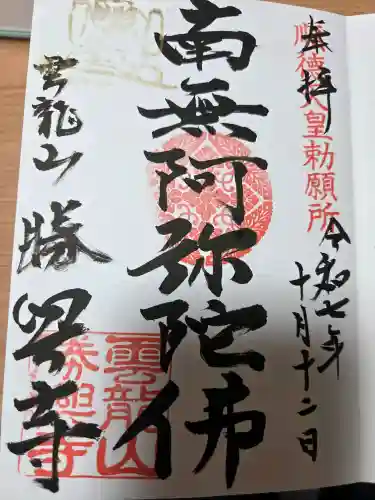 奉拝
順徳天皇勅願所
令和七年
十月十二日
南無阿弥陀佛
雲龍山
勝興寺
雲龍山
勝興寺